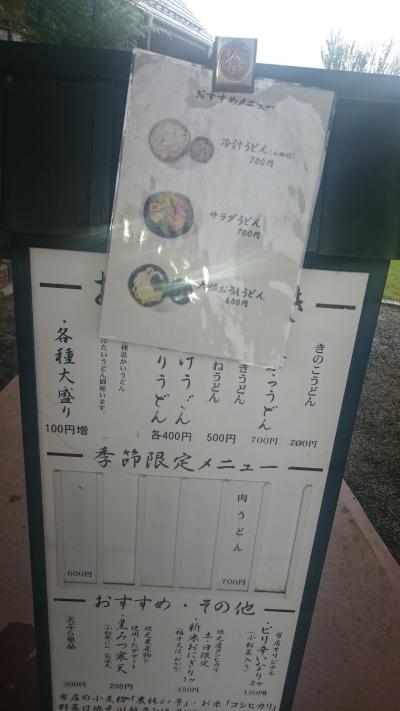 おすすめメニュー
冷汁うどん(小鉢付)
700円
サラダうどん
700円
大根おろしうどん
600円
きのこうどん
700円
つうどん
700円
きうどん
ねうどん
500円
けうどん
りうどん
各400円
種温かいうどん
冷たいうどん御座います。
・各種大盛り
100円増
季節限定メニュー
肉うどん
700円
600円
おすすめ・その他
当店オリジナル
・ピリ辛いなり2ヶ
(小松菜入り)
150円
地元産コシヒカリ
土・日限定
新米おにぎり1ヶ
150円
地元農産物で
使用したデザート
・黒みつ寒天
200円
天ぷら単品
300円
当店の小麦粉「農林61号」・お米「コシヒカリ」